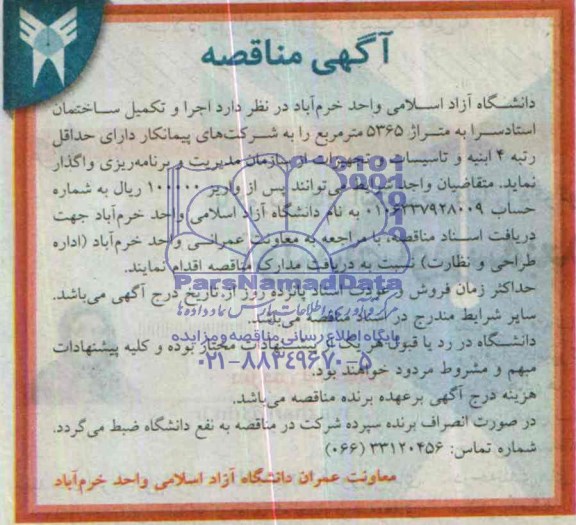 آگهی مناقصه
دانشگاه آزاد اسلامی واحد خرم‌آباد در نظر دارد اجرا و تکمیل ساختمان
استادسرا به متراژ ۵۳۶۵ مترمربع را به شرکت‌های پیمانکار دارای حداقل
رتبه ۴ ابنیه و تاسیسات و تجهیزات از سازمان مدیریت و برنامه‌ریزی واگذار
نماید. متقاضیان واجد شرایط می‌توانند پس از واریز ۱۰۰۰۰۰۰ ریال به شماره
حساب ۰۱۰۶۲۳۷۹۲۸۰۰۹ به نام دانشگاه آزاد اسلامی واحد خرم‌آباد جهت
دریافت اسناد مناقصه، با مراجعه به معاونت عمرانی واحد خرم‌آباد (اداره
طراحی و نظارت) نسبت به دریافت مدارک مناقصه اقدام نمایند.
ParsNamadData
حداکثر زمان فروش و عودت اسناد پانزده روز از تاریخ درج آگهی می‌باشد.
سایر شرایط مندرج در اسناد مناقصه می‌باشد.
پایگاه اطلاع رسانی مناقصه و مزایده
دانشگاه در رد یا قبول هر یک از پیشنهادات مختار بوده و کلیه پیشنهادات
۰۲۱-۸۸۳۴۹۶۷۰-۵
مبهم و مشروط مردود خواهند بود.
هزینه درج آگهی برعهده برنده مناقصه می‌باشد.
در صورت انصراف برنده سپرده شرکت در مناقصه به نفع دانشگاه ضبط می‌گردد.
شماره تماس: ۳۳۱۲۰۴۵۶ (۰۶۶)
معاونت عمران دانشگاه آزاد اسلامی واحد خرم‌آباد